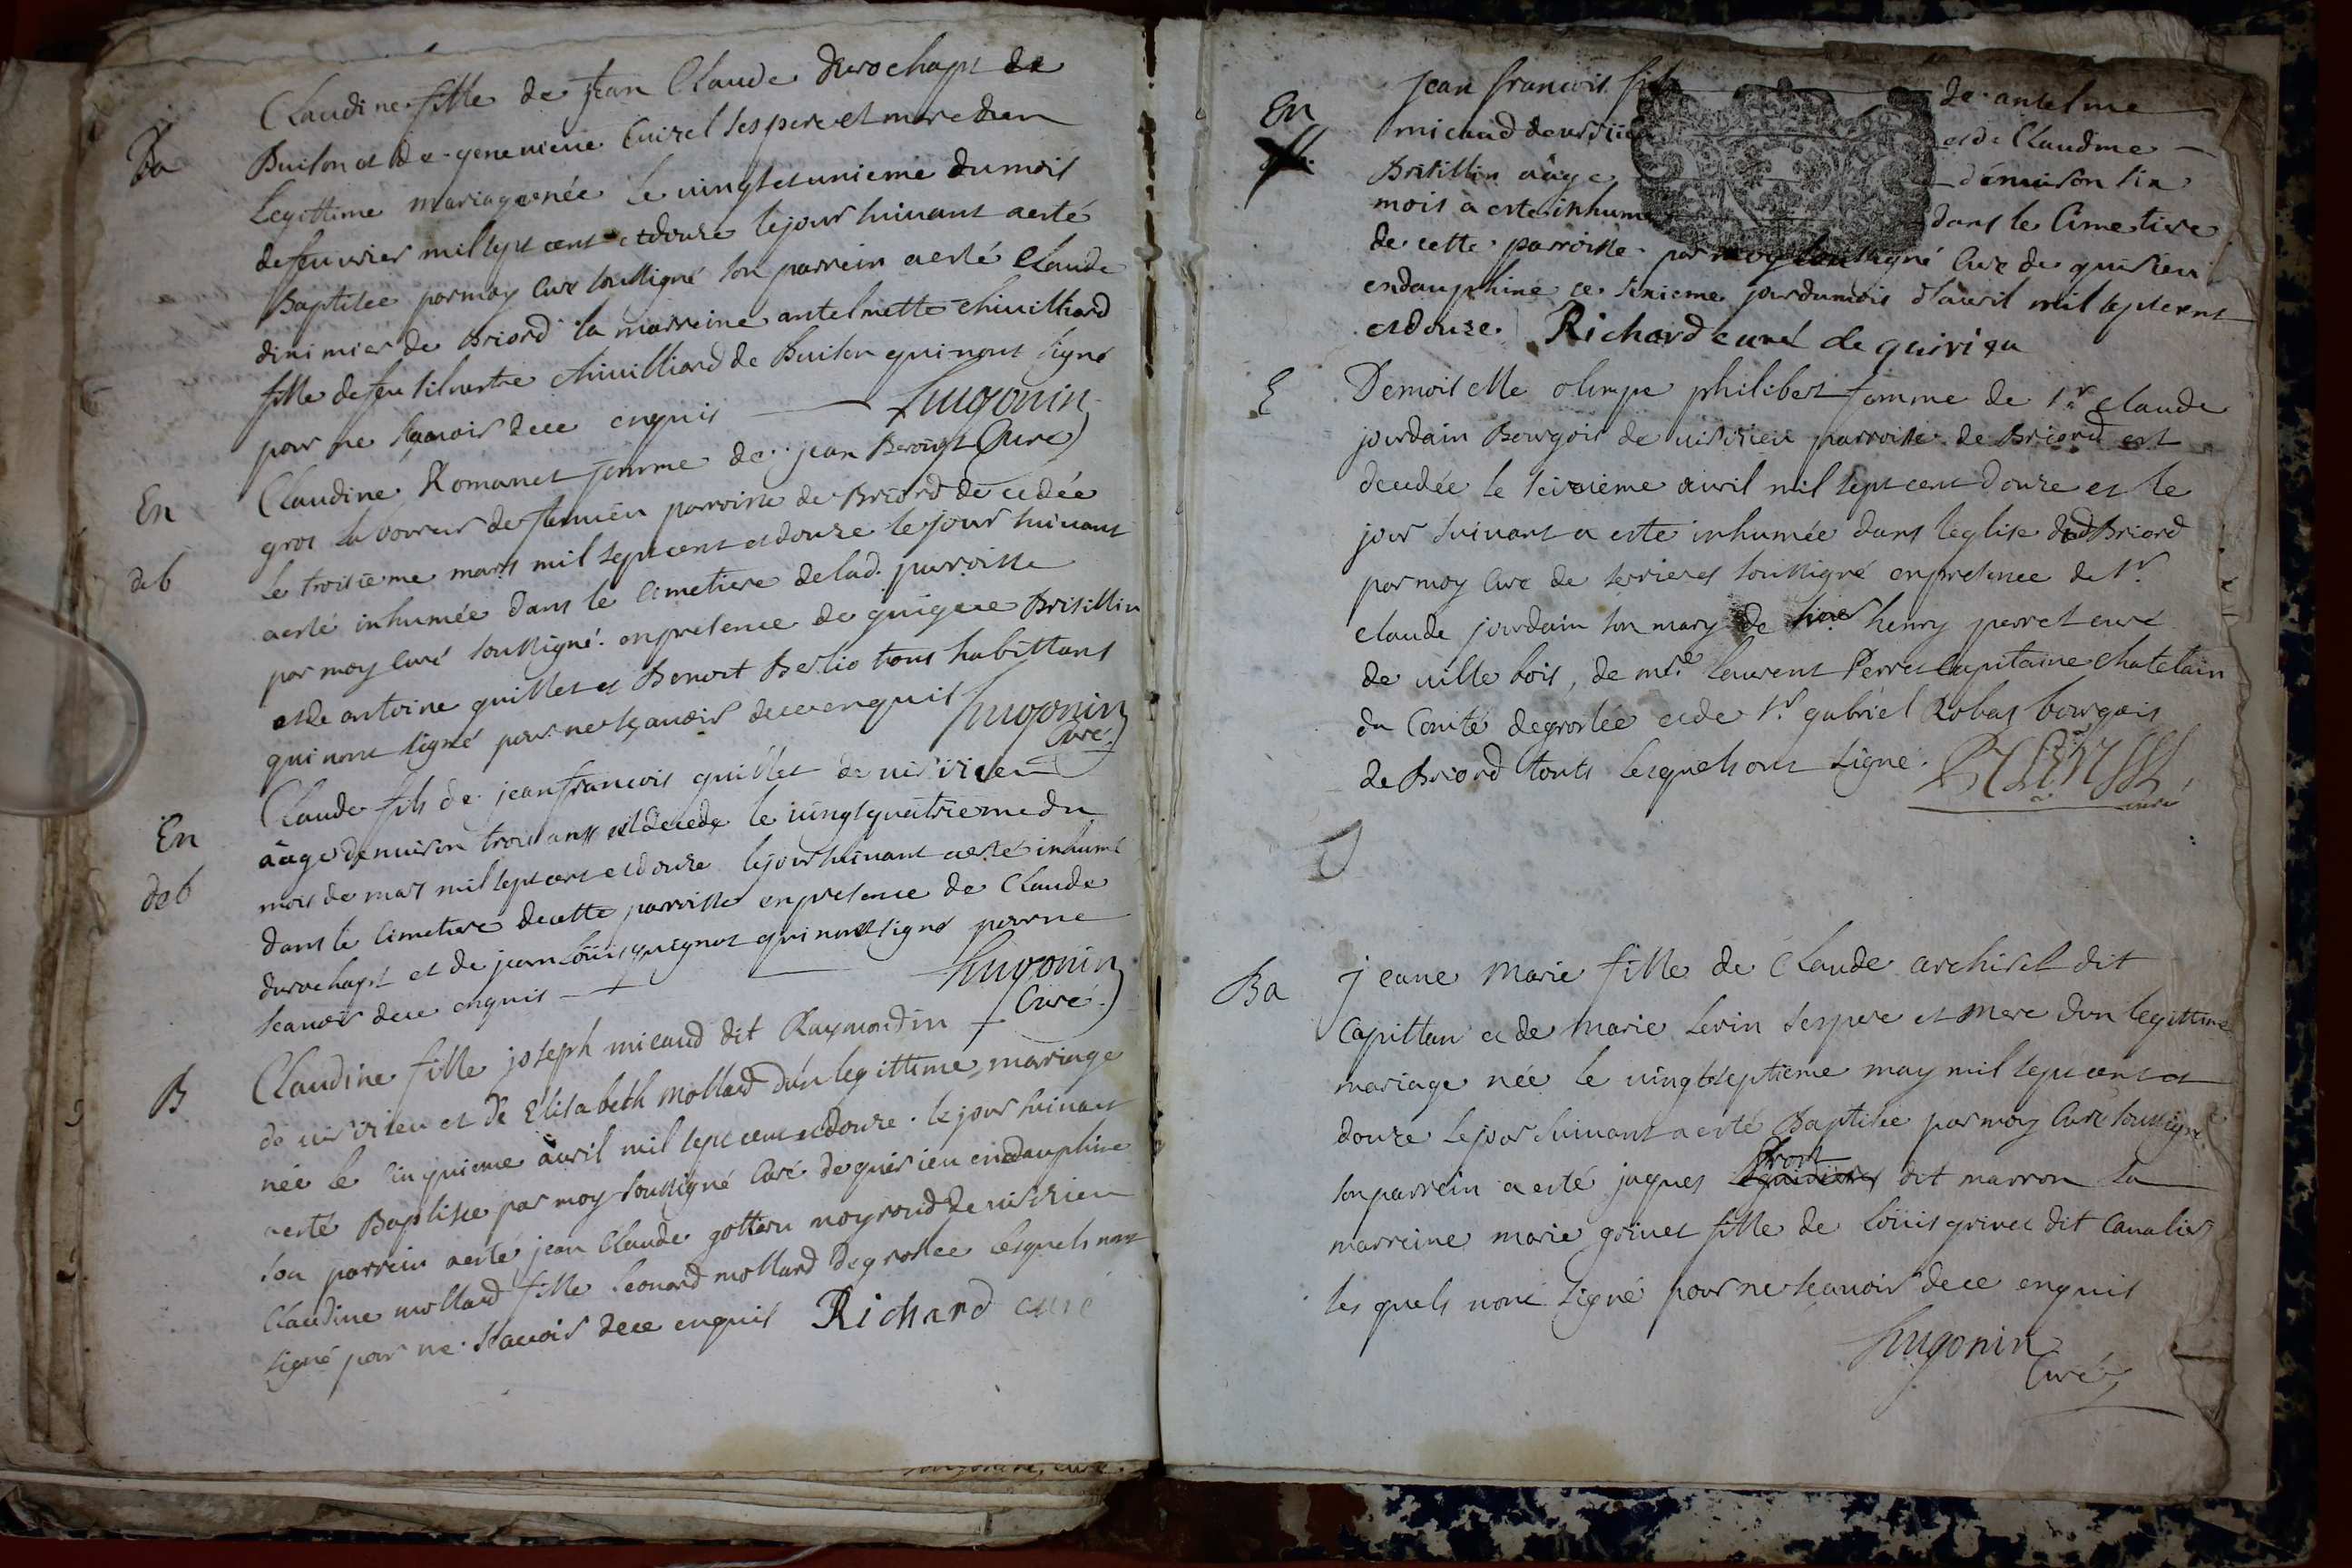 Claudine fille de Jean Claude durochapt de
Ba
Buison et de genevieve Cuirel ses pere et mere dun
Legittime mariage née le vingt et unieme du mois
de feuvrier mil sept cent et douze le jour suivant a esté
Baptisee par moy Curé soussigné son parrein a esté Claude
de Briord la marreine antelmette chivilliard
fille de feu silvestre chivilliard de Buison qui nont signé
pour ne sçavoir de ce enquis hugonin
Curé
En
Claudine Romanet femme de jean Benoist
gros laboureur de parroisse de Briord decedée
deb
le troisieme mars mil sept cent et douze le jour suivant
a esté inhumée dans le cimetiere de lad. parroisse
par moy Curé soussigné en presence de guigue Brisillin
et de antoine guillet et Benoit Berlio tous habittans
qui nont signé pour ne sçavoir de ce enquis hugonin
Curé
Claude fils de jean francois guillet de visirieu
En
aâgé denviron trois ans est decede le vingt quatrieme du
deb
mois de mars mil sept cent et douze le jour suivant a esté inhumé
dans le cimetiere de cette parroisse en presence de Claude
durochapt et de jean Loüis quignot qui nont signé pour ne
scavoir de ce enquis hugonin
Curé
B
Claudine fille joseph micaud dit Raymondin
de visirieu et de Elisabeth mollard dun legittime mariage
née le cinquieme avril mil sept cent et douze . le jour suivant
a esté Baptisée par moy soussigné Curé de quirieu en dauphine
son parrein a esté jean Claude gotteru noyroud de visirieu
Claudine mollard fille Leonard mollard de groslee lesquels nont
signé pour ne scavoir de ce enquis Richard curé
Jean francois fils de antelme
En
micaud de et de Claudine
Brisillin aâgé denviron six
mois a este inhumé dans le Cimetiere
de cette parroisse par moy soussigné Curé de quirieu
en dauphine ce sixieme jour du mois d'avril mil sept cent
et douze. Richard curé de quirieu
E
Demoiselle olimpe philibert femme de Sr. claude
jourdain Bourgois de visirieu parroisse de Briord est
decedée le seizieme avril mil sept cent douze et le
jour suivant a este inhumée dans leglise dud Briord
par moy Curé de serrieres soussigné en presence de Sr.
claude jourdain son mary de henry perret curé
de ville bois, de mre laurent Perret Capitaine chatelain
du Comté de groslée et de Sr. gabriel Robat bourgois
de Briord touts lesquels ont signé.
curé
Ba
jeane Marie fille de Claude archirel dit
Capittan et de Marie Serin ses pere et mere dun legittime
mariage née le vingt septieme may mil sept cent et
douze le jour suivant a esté Baptisée par moy Curé soussigné
son parrein a esté jaques dit marron sa
marreine marie grinet fille de Loüis grinet dit Cavalier
les quels nont signé pour ne scavoir de ce enquis
hugonin
Curé